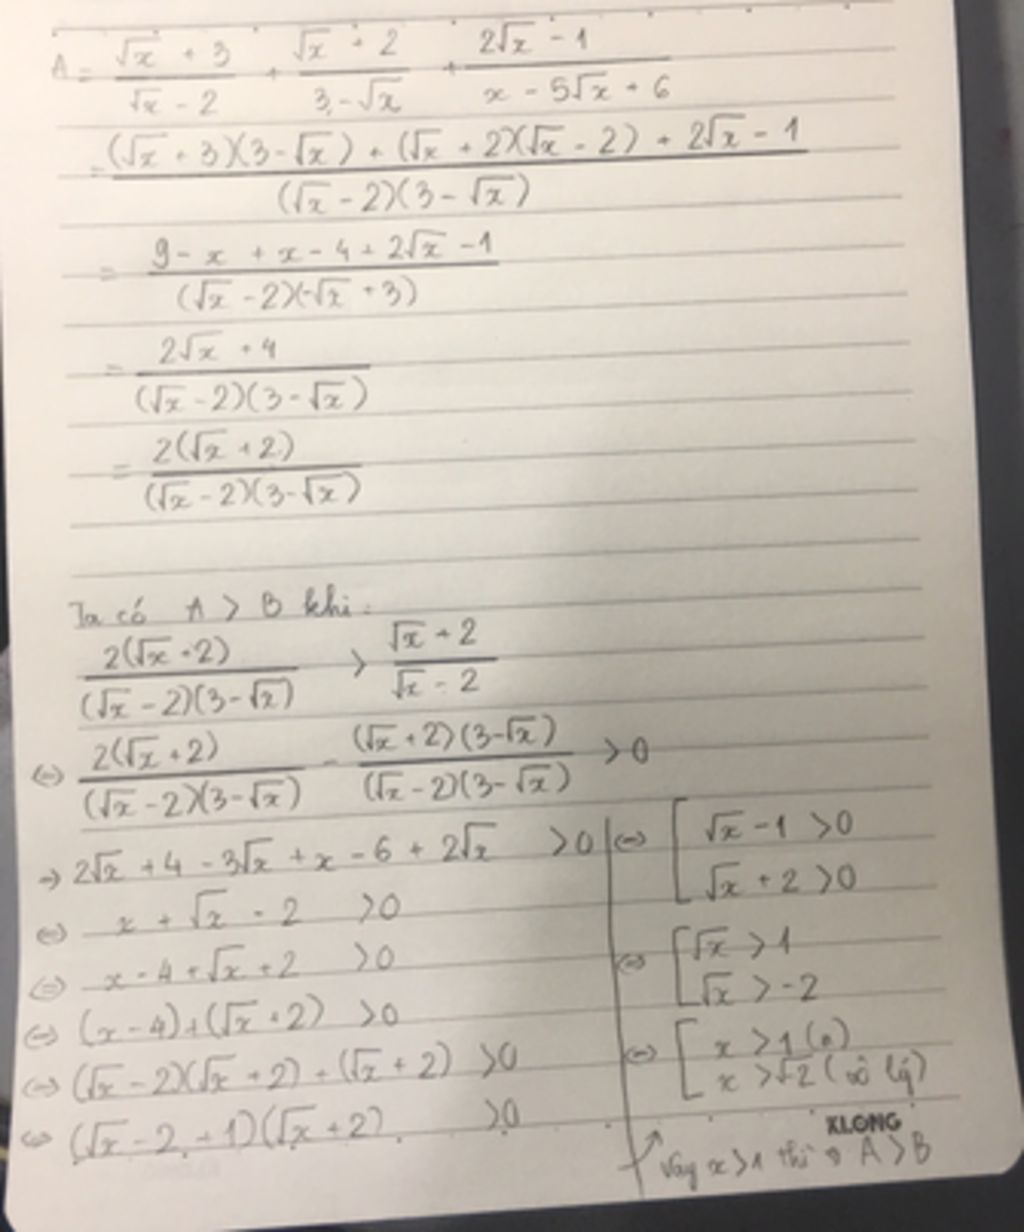 A = (√x + 3)/(√x - 2) + (√x + 2)/(3 - √x) + (2√x - 1)/(x - 5√x + 6)
= ((√x + 3)(3 - √x) + (√x + 2)(√x - 2) + 2√x - 1)/((√x - 2)(3 - √x))
= (9 - x + x - 4 + 2√x - 1)/((√x - 2)(-√x + 3))
= (2√x + 4)/((√x - 2)(3 - √x))
= (2(√x + 2))/((√x - 2)(3 - √x))
Ta có A > B khi:
(2(√x + 2))/((√x - 2)(3 - √x)) > (√x + 2)/(√x - 2)
⇔ (2(√x + 2))/((√x - 2)(3 - √x)) - ((√x + 2)(3 - √x))/((√x - 2)(3 - √x)) > 0
⇒ 2√x + 4 - 3√x + x - 6 + 2√x > 0
⇔ x + √x - 2 > 0
⇔ x - 4 + √x + 2 > 0
⇔ (x - 4) + (√x + 2) > 0
⇔ (√x - 2)(√x + 2) + (√x + 2) > 0
⇔ (√x - 2 + 1)(√x + 2) > 0
⇔ [ √x - 1 > 0
√x + 2 > 0
⇔ [ √x > 1
√x > -2
⇔ [ x > 1
x > √2 (vô lý)
KLONG
Vậy x > 1 thì A > B